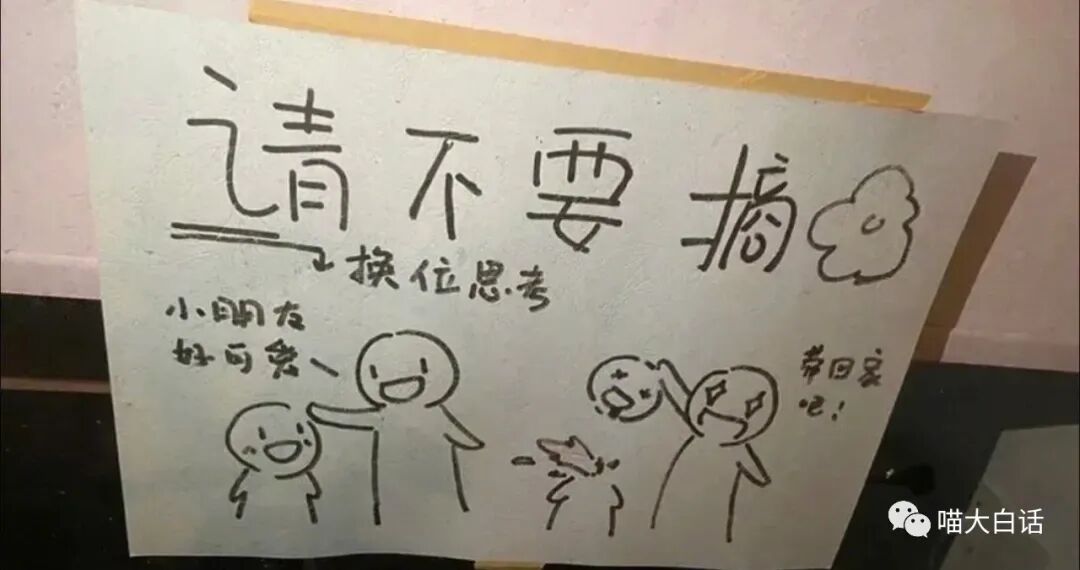 请不要摘
换位思考
小朋友
好可爱
带回家
吧！
喵大白话